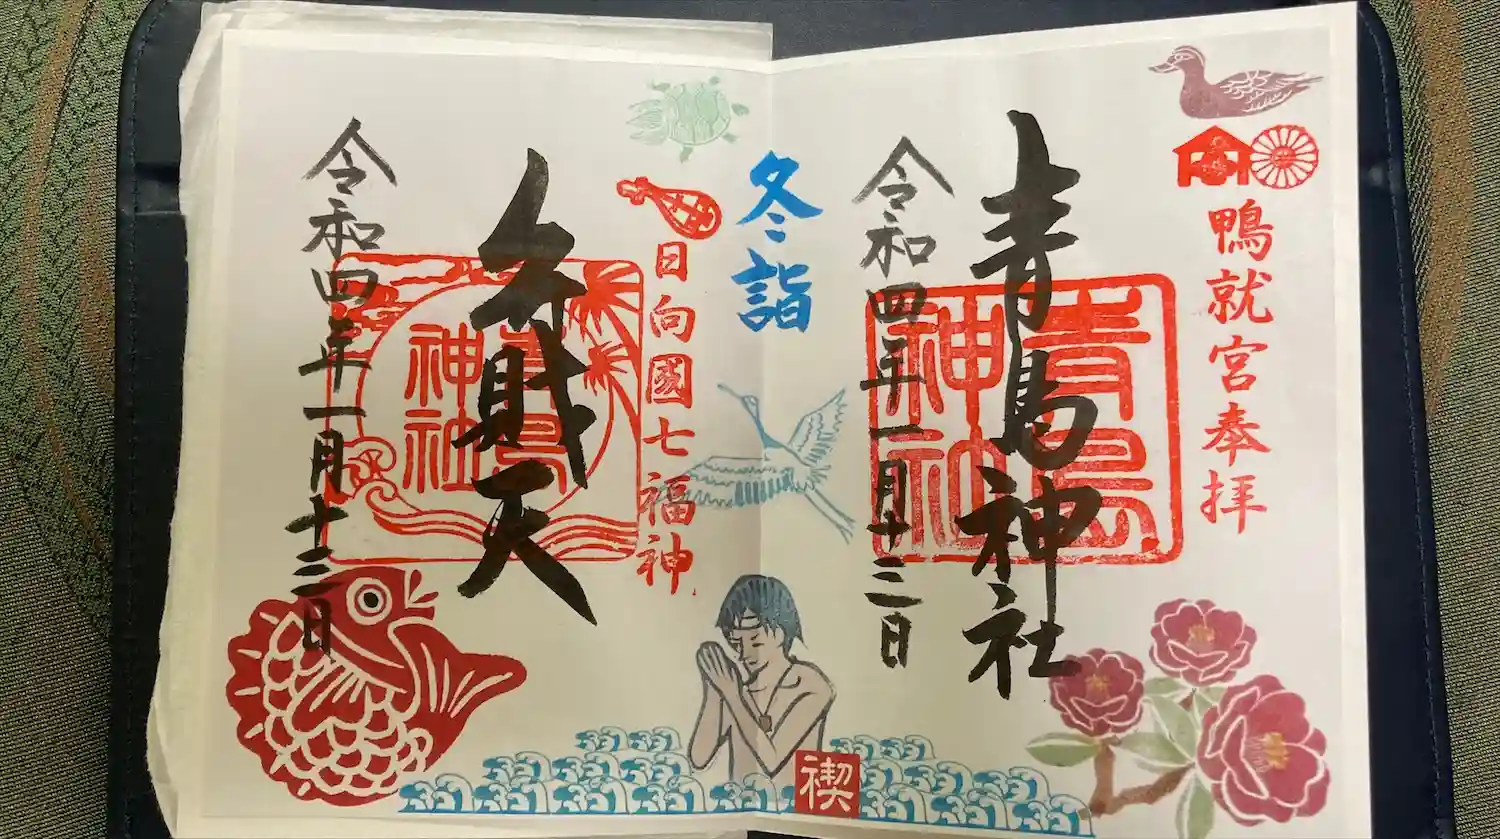 鴨就宮奉拝
青島神社
青島神社
令和四年一月十三日
冬詣
日向國七福神
弁財天
青島神社
令和四年一月十三日
禊